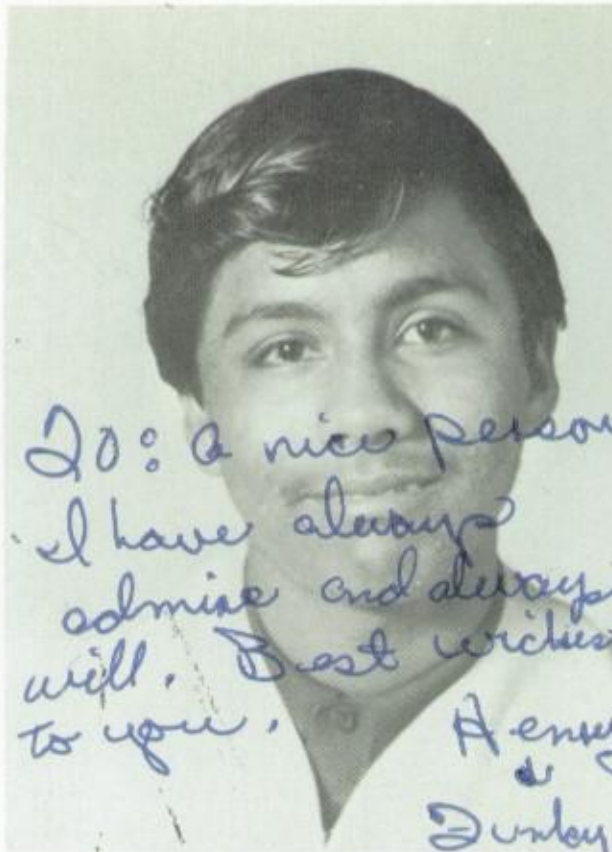 To: a nice person
I have always
admire and always
will. Best wiches
to you. Henry
&